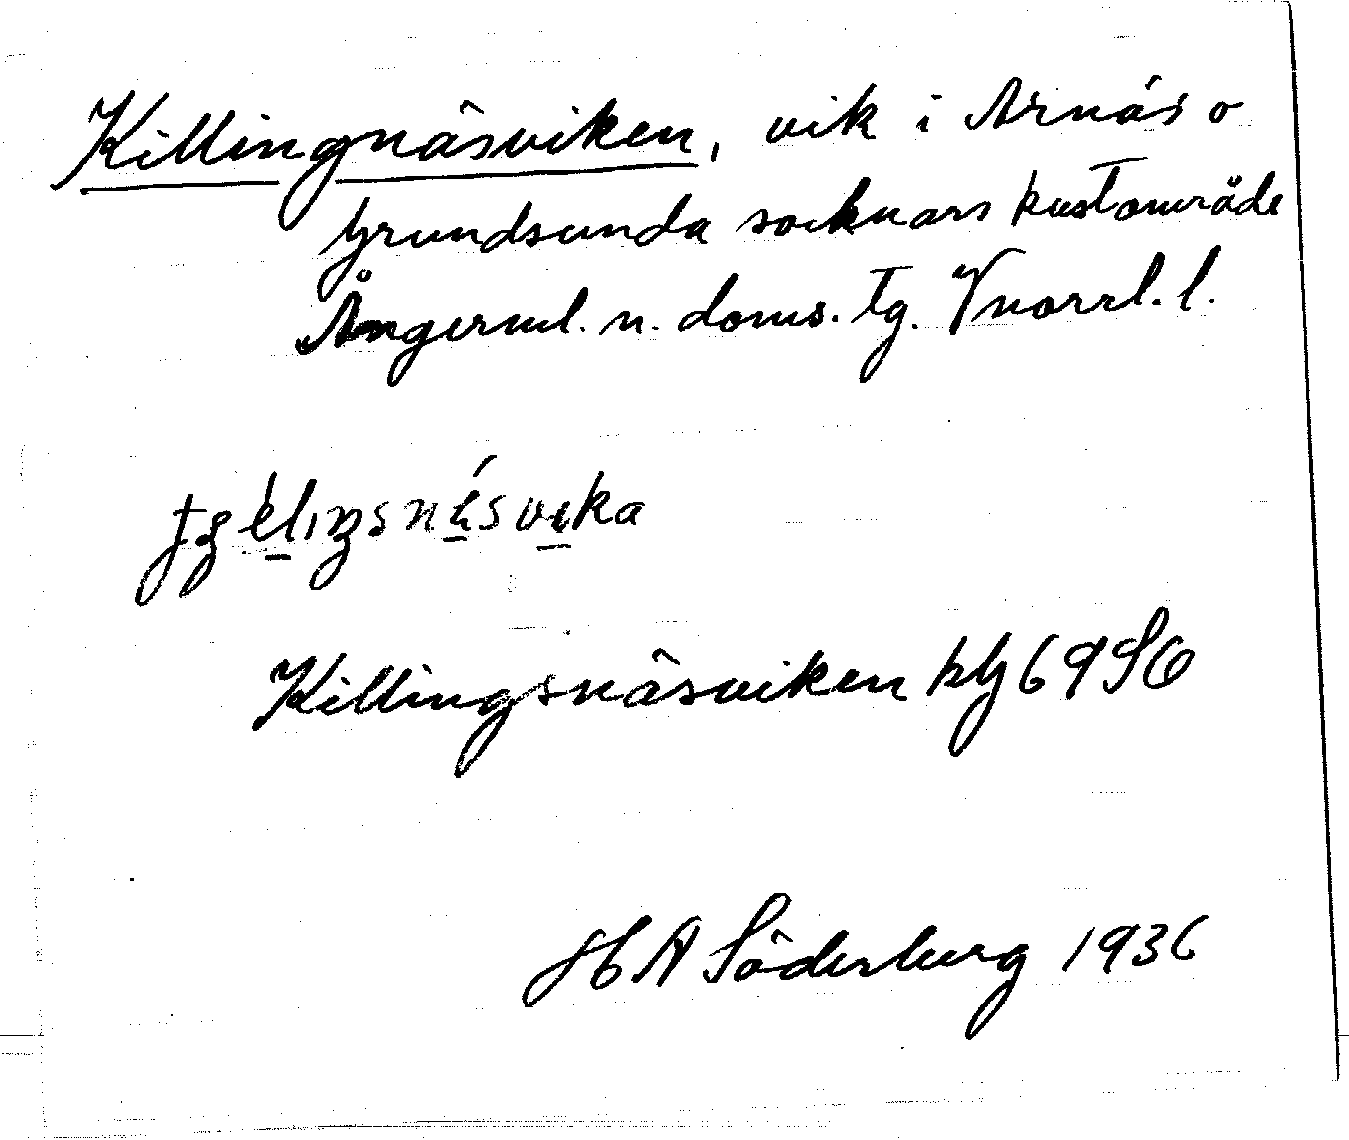 Killingnäsviken, vik i Arnäs o
Grundsunda socknars kustområde
Ångerml. n. doms. tg. Vnorrl. l.
Killingsnäsviken klg 69 SO
H A Söderberg 1936